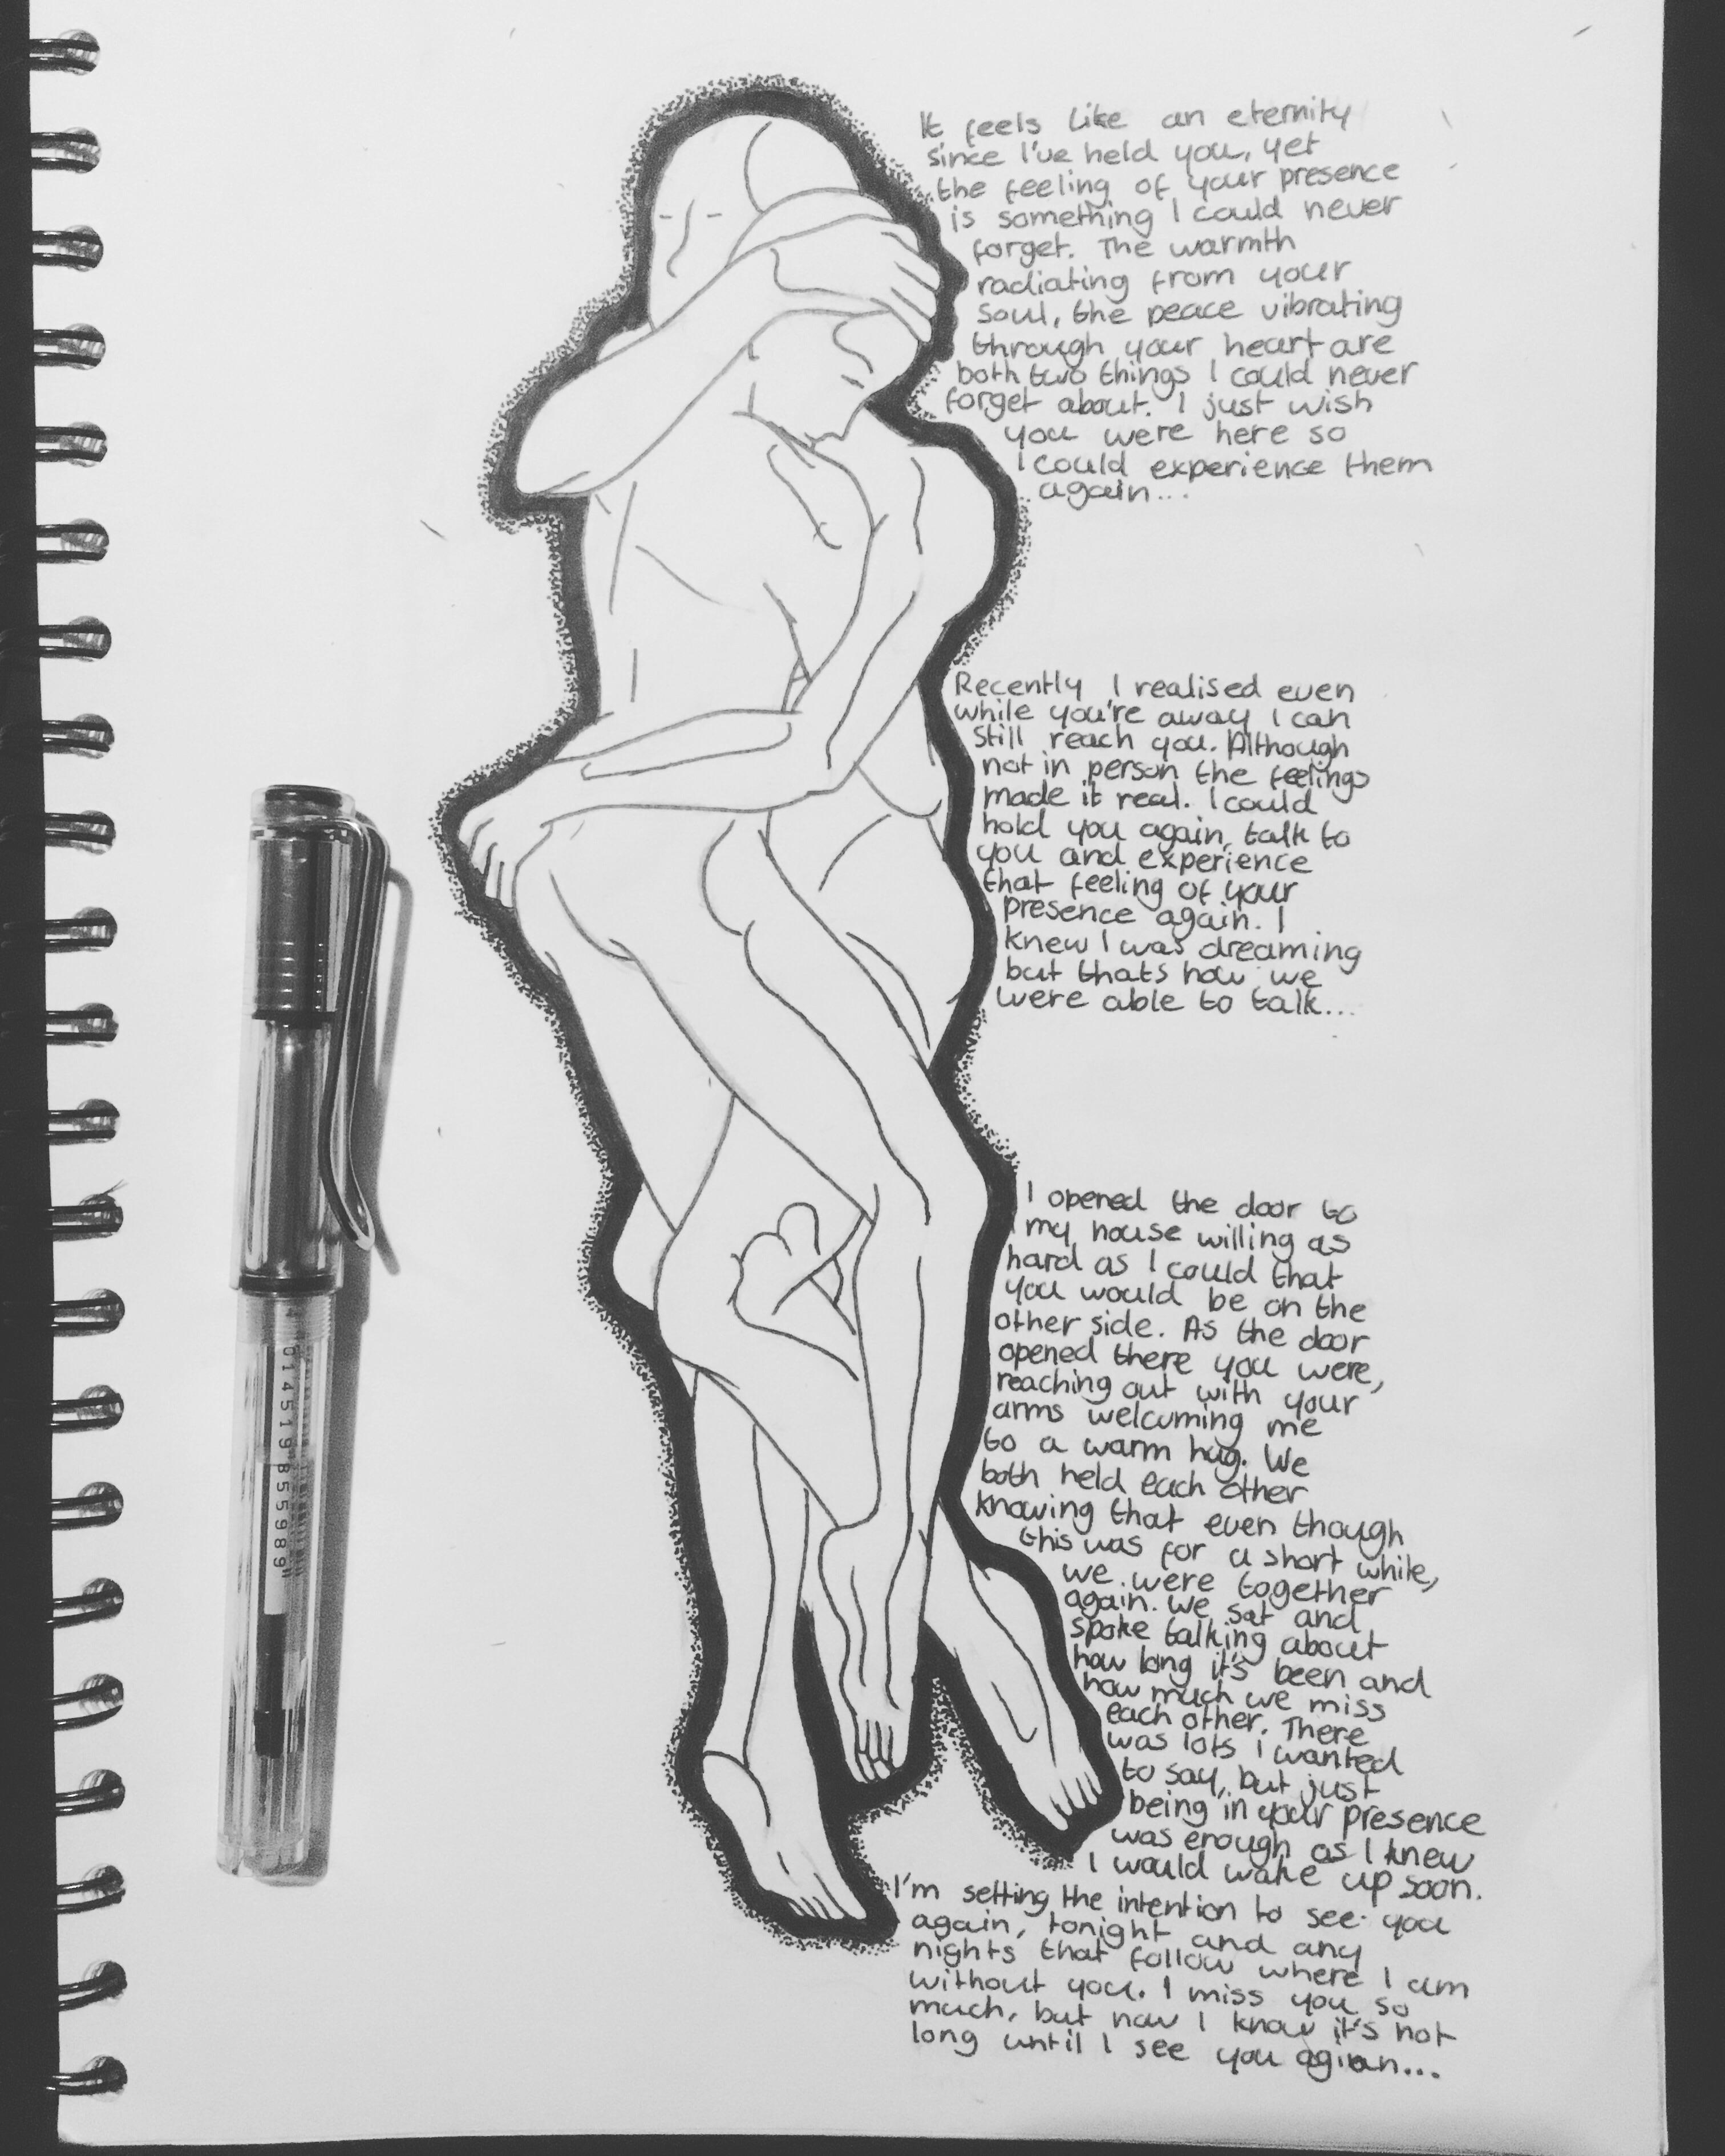 It feels like an eternity
since I've held you, yet
the feeling of your presence
is something I could never
forget. The warmth
radiating from your
soul, the peace vibrating
through your heart are
both two things I could never
forget about. I just wish
you were here so
I could experience them
again...
Recently I realised even
while you're away I can
still reach you. Although
not in person the feelings
made it real. I could
hold you again, talk to
you and experience
that feeling of your
presence again. I
knew I was dreaming
but thats how we
were able to talk...
I opened the door to
my house willing as
hard as I could that
you would be on the
other side. As the door
opened there you were,
reaching out with your
arms welcuming me
to a warm hug. We
both held each other
knowing that even though
this was for a short while,
we were together
again. We sat and
spoke talking about
how long it's been and
how much we miss
each other. There
was lots i wanted
to say, but just
being in your presence
was enough as I knew
I would wake up soon.
I'm setting the intention to see you
again, tonight and any
nights that follow where I am
without you. I miss you so
much, but now I know it's not
long until I see you agiean...
014519 855989